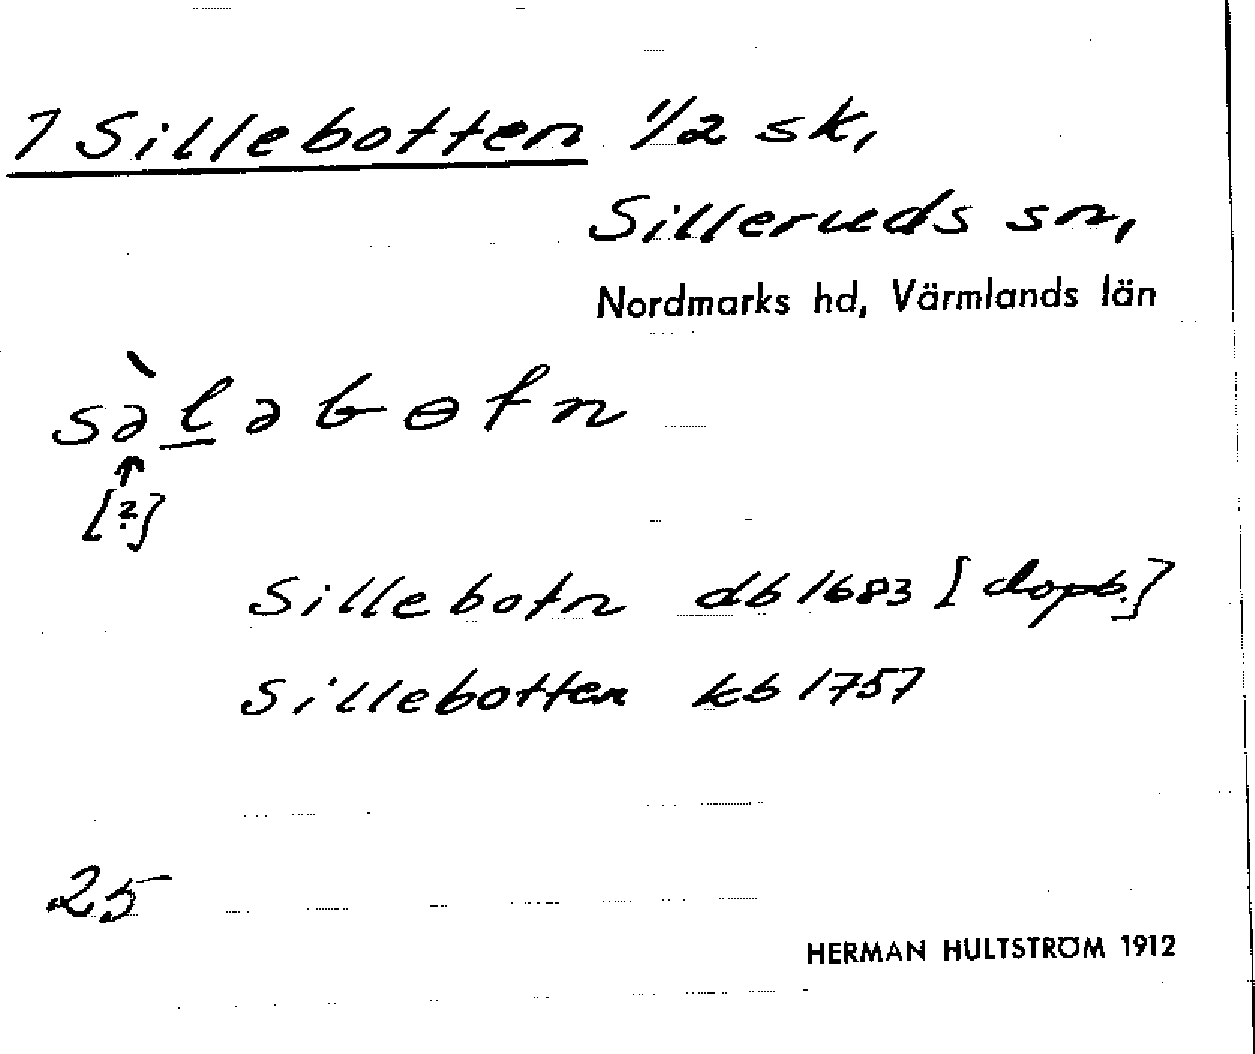 1 Sillebotten 1/2 sk,
Silleruds sn,
Nordmarks hd, Värmlands län
sə̀l̲əbɵtn
↑
[?]
Sillebotn db 1683 [dopb.]
Sillebotten kb 1757
25
HERMAN HULTSTRÖM 1912